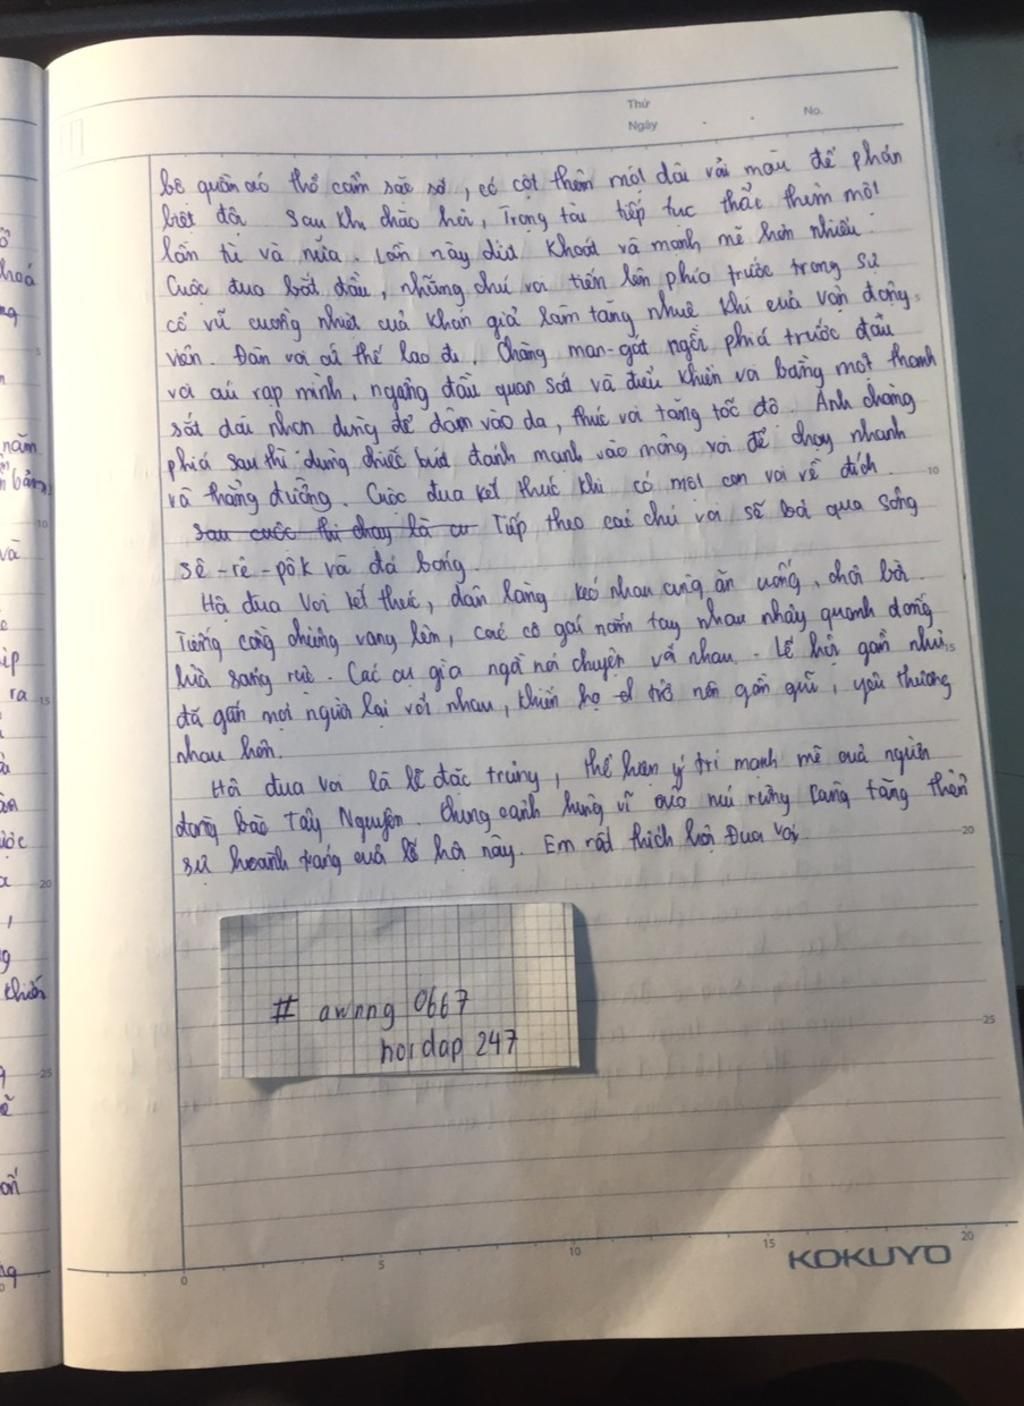 Thứ
Ngày
No.
bộ quần áo thổ cẩm sặc sỡ, có cột thêm một dải vải màu để phân
biệt đội. Sau khi chào hỏi, Trọng tài tiếp tục thắc thêm một
lần tù và nữa. Lần này dứt khoát và mạnh mẽ hơn nhiều.
Cuộc đua bắt đầu, những chú voi tiến lên phía trước trong sự
cổ vũ cuồng nhiệt của khán giả làm tăng nhuệ khí của vận động
viên. Đàn voi cứ thế lao đi. Chàng man-gát ngồi phía trước đầu
voi cúi rạp mình, ngẩng đầu quan sát và điều khiển voi bằng một thanh
sắt dài nhọn dùng để đâm vào da, thúc voi tăng tốc độ. Anh chàng
phía sau thì dùng chiếc búa đánh mạnh vào mông voi để chạy nhanh
và thẳng đường. Cuộc đua kết thúc khi có một con voi về đích.
sau cuộc thi chạy là cu Tiếp theo các chú voi sẽ bơi qua sông
Sê-rê-pôk và đá bóng.
Hội đua voi kết thúc, dân làng kéo nhau cùng ăn uống, chơi bời.
Tiếng cồng chiêng vang lên, các cô gái nắm tay nhau nhảy quanh đống
lửa sáng rực. Các cụ già ngồi nói chuyện với nhau. Lễ hội gần như
đã gắn mọi người lại với nhau, khiến họ trở nên gần gũi, yêu thương
nhau hơn.
Hội đua voi là lễ đặc trưng, thể hiện ý trí mạnh mẽ của người
đồng bào Tây Nguyên. Khung cảnh hùng vĩ của núi rừng càng tăng thêm
sự hoành tráng của lễ hội này. Em rất thích hội Đua voi.
# awnng 0667
hoidap 247
KOKUYO